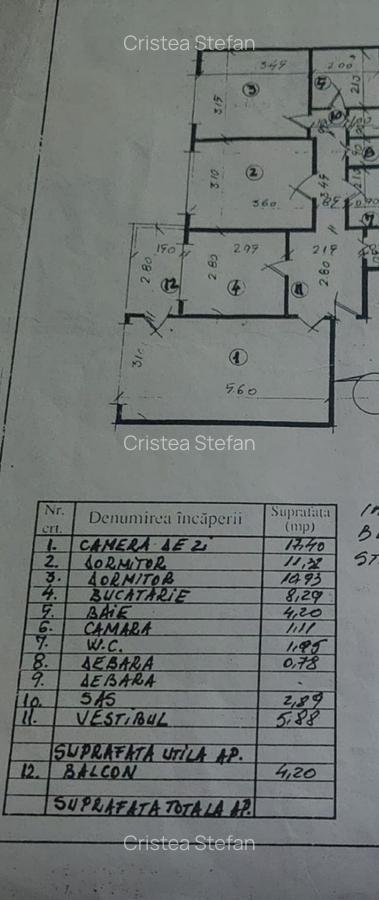 Cristea Stefan
349
200
5
3
315
210
10
90
2
310
360
349
210
7
190
299
219
12
280
280
280
4
11
310
1
560
Cristea Stefan
Nr. crt. Denumirea încăperii Suprafața (mp)
1. CAMERA DE ZI 17,40
2. DORMITOR
3. DORMITOR 10,93
4. BUCATARIE 8,29
5. BAIE 4,20
6. CAMARA 1,11
7. W.C.
8. DEBARA 0,78
9. DEBARA -
10. SAS 2,89
11. VESTIBUL 5,88
SUPRAFATA UTILA AP.
12. BALCON 4,20
SUPRAFATA TOTALA AP.
Cristea Stefan